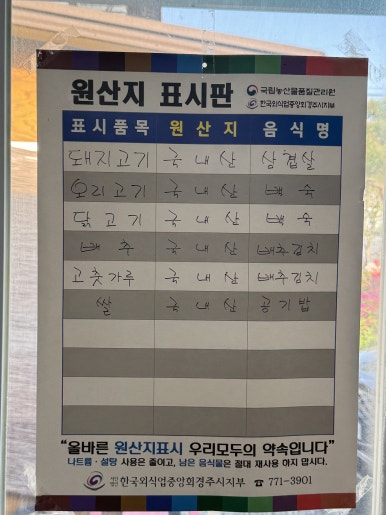 원산지 표시판
국립농산물품질관리원
한국외식업중앙회경주시지부
표시품목 원산지 음식명
돼지고기 국내산 삼겹살
오리고기 국내산 백숙
닭고기 국내산 백숙
배추 국내산 배추김치
고춧가루 국내산 배추김치
쌀 국내산 공기밥
“올바른 원산지표시 우리모두의 약속입니다”
나트륨·설탕 사용은 줄이고, 남은 음식물은 절대 재사용 하지 맙시다.
사단법인 한국외식업중앙회경주시지부 ☎ 771-3901